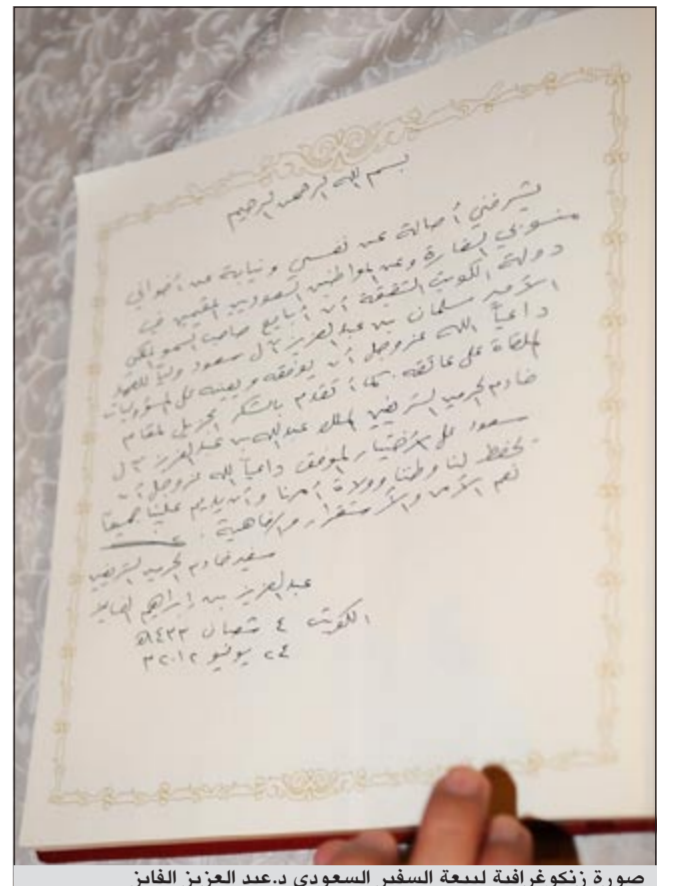 بسم الله الرحمن الرحيم
يشرفني أصالة عن نفسي ونيابة عن أخواني
منسوبي السفارة وعن المواطنين السعوديين المقيمين في
دولة الكويت الشقيقة أن أبايع صاحب السمو الملكي
الأمير سلمان بن عبدالعزيز آل سعود ولياً للعهد
داعياً الله عز وجل أن يوفقه ويعينه على المسؤوليات
الملقاة على عاتقه. كما أتقدم بالشكر الجزيل لمقام
خادم الحرمين الشريفين الملك عبدالله بن عبدالعزيز آل
سعود على الأختيار الموفق داعياً الله عز وجل أن
يحفظ لنا وطننا وولاة أمرنا وأن يديم علينا جميعاً
نعم الأمن والأستقرار والرفاهية.
سفير خادم الحرمين الشريفين
عبدالعزيز بن إبراهيم الفايز
الكويت ٤ شعبان ١٤٣٣هـ
٢٤ يونيو ٢٠١٢م
صورة زنكوغرافية لبيعة السفير السعودي د.عبد العزيز الفايز